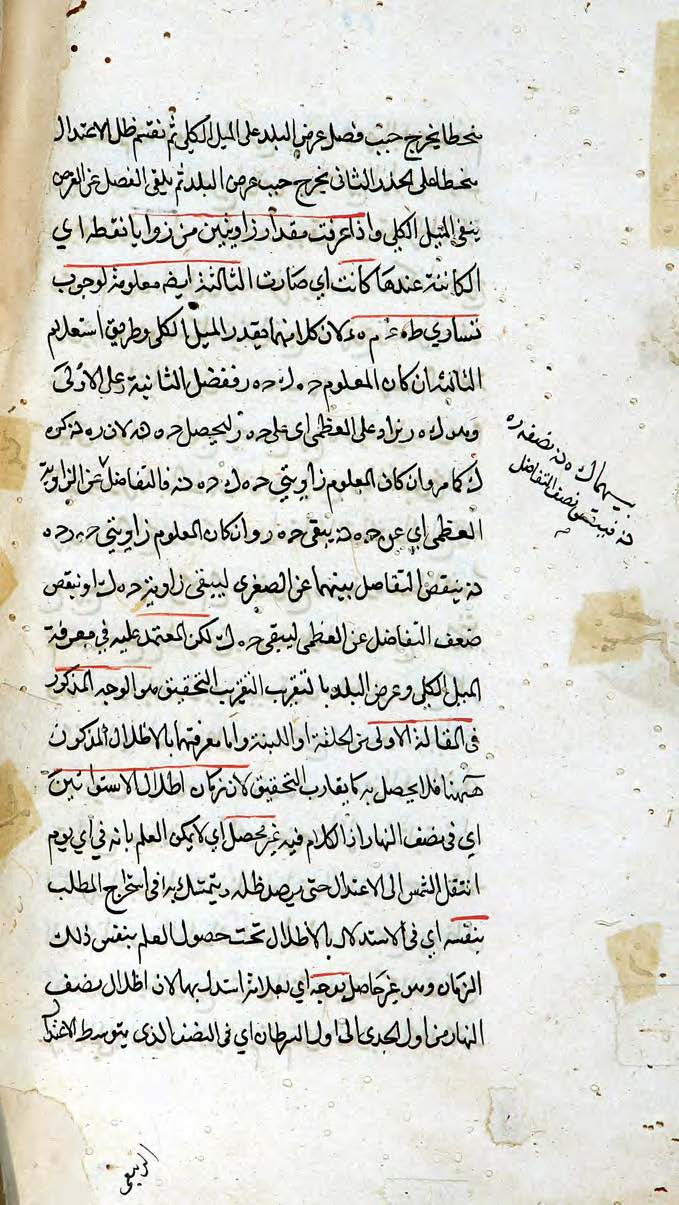 منحطا يخرج جيب فضل عرض البلد على الميل الكلي ثم نقسم ظل الاعتدال
منحطا على الجذر الثاني يخرج جيب عرض البلد ثم يلقى الفضل عن العرض
يبقى الميل الكلي واذا عرفت مقدار زاويتين من زوايا نقطه اي
الكائنة عندها كانت اي صارت الثالثة ايضه معلومة لوجوب
تساوي طه ء م ه ء لان كلا منهما بقدر الميل الكلي وطريق استعلام
الثالثة ان كان المعلوم ح ه ك ح ه ر ففضل الثانية على الاولى
وهو ك ه ر يزاد على العظمى اي على ح ه ر ليحصل ح ه ن لان ر ه ن كره
ك كما مر وان كان المعلوم زاويتي ح ه ك ح ه ن فالتفاضل عن الزاوية
العظمى اي عن ح ه ن يبقى ح ه ر وان كان المعلوم زاويتي ح ه ر ح ه
ن ينقص التفاضل بينهما عن الصغرى ليبقى زاوية ح ه ك او نبقص
ضعف التفاضل عن العظمى ليبقى ح ه ك لكن المعتمد عليه في معرفة
الميل الكلي وعرض البلد بالتقريب القريب التحقيق هو الوجه المذكور
في المقالة الاولى من الحلقة او اللبنة واما معرفتهما بالاظلال المذكون
ههنا فلا يحصل به كما يقارب التحقيق لان زمان اظلال الاستوائين
اي في نصف النهار اذ الكلام فيه غير محصل اي لا يمكن العلم بانه في اي يوم
انتقل الشمس الى الاعتدال حتى يرصد ظله ويتمسك به في استخراج المطلب
بنفسه اي في الاستدلال بالاظلال تحت حصول العلم بنفس ذلك
الزمان وهو غير حاصل بوجه اي بعلامة استدل بها لان اظلال نصف
النهار من اول الجدي الى اول السرطان اي في النصف الذي يتوسط الاعتدال
بينهما ك ه ن نصفه ره
ن فينتقص نصف التفاضل
الربيعي